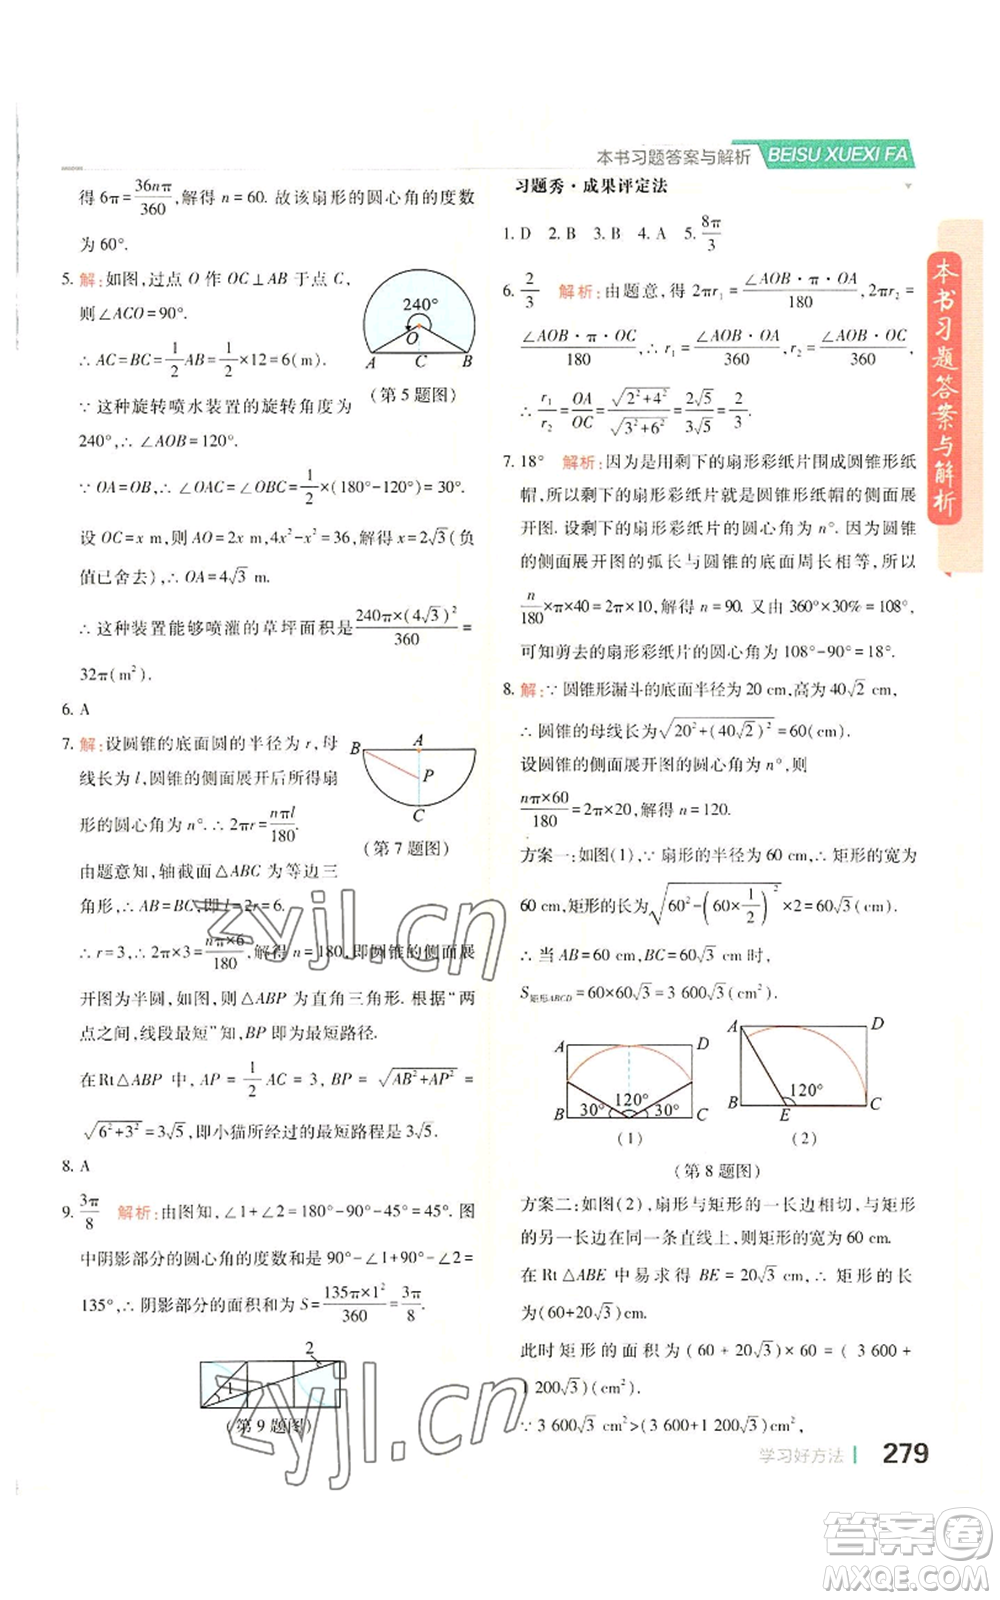 本书习题答案与解析 BEISU XUEXI FA
得 6π=36nπ/360,解得 n=60. 故该扇形的圆心角的度数
为 60°.
5. 解:如图,过点 O 作 OC⊥AB 于点 C,
则∠ACO=90°.
∴ AC=BC=1/2AB=1/2×12=6(m).
∵ 这种旋转喷水装置的旋转角度为
240°,∴∠AOB=120°.
240°
O
A C B
(第 5 题图)
∵ OA=OB,∴∠OAC=∠OBC=1/2×(180°-120°)=30°.
设 OC=x m,则 AO=2x m,4x²-x²=36,解得 x=2√3(负
值已舍去),∴ OA=4√3 m.
∴ 这种装置能够喷灌的草坪面积是 240π×(4√3)²/360=
32π(m²).
6. A
7. 解:设圆锥的底面圆的半径为 r,母
线长为 l,圆锥的侧面展开后所得扇
形的圆心角为 n°.∴ 2πr=nπl/180.
由题意知,轴截面△ABC 为等边三
角形,∴ AB=BC,即 l=2r=6.
B A
P
C
(第 7 题图)
∴ r=3,∴ 2π×3=nπ×6/180,解得 n=180,即圆锥的侧面展
开图为半圆,如图,则△ABP 为直角三角形. 根据“两
点之间,线段最短”知,BP 即为最短路径.
在Rt△ABP 中,AP=1/2AC=3,BP=√(AB²+AP²)=
√(6²+3²)=3√5,即小猫所经过的最短路程是 3√5.
8. A
9. 3π/8 解析:由图知,∠1+∠2=180°-90°-45°=45°. 图
中阴影部分的圆心角的度数和是 90°-∠1+90°-∠2=
135°,∴ 阴影部分的面积和为 S=135π×1²/360=3π/8.
2
1
(第 9 题图)
习题秀·成果评定法
1. D 2. B 3. B 4. A 5. 8π/3
6. 2/3 解析:由题意,得 2πr₁=∠AOB·π·OA/180,2πr₂=
∠AOB·π·OC/180,∴ r₁=∠AOB·OA/360,r₂=∠AOB·OC/360,
∴ r₁/r₂=OA/OC=√(2²+4²)/√(3²+6²)=2√5/3√5=2/3.
7. 18° 解析:因为是用剩下的扇形彩纸片围成圆锥形纸
帽,所以剩下的扇形彩纸片就是圆锥形纸帽的侧面展
开图. 设剩下的扇形彩纸片的圆心角为 n°. 因为圆锥
的侧面展开图的弧长与圆锥的底面周长相等,所以
n/180×π×40=2π×10,解得 n=90. 又由 360°×30%=108°,
可知剪去的扇形彩纸片的圆心角为 108°-90°=18°.
8. 解:∵ 圆锥形漏斗的底面半径为 20 cm,高为 40√2 cm,
∴ 圆锥的母线长为 √(20²+(40√2)²)=60(cm).
设圆锥的侧面展开图的圆心角为 n°,则
nπ×60/180=2π×20,解得 n=120.
方案一:如图(1),∵ 扇形的半径为 60 cm,∴ 矩形的宽为
60 cm,矩形的长为√(60²-(60×1/2)²)×2=60√3(cm).
∴ 当 AB=60 cm,BC=60√3 cm 时,
S矩形ABCD=60×60√3=3 600√3(cm²).
A D
120°
B 30° 30° C
(1)
A D
120°
B E C
(2)
(第 8 题图)
方案二:如图(2),扇形与矩形的一长边相切,与矩形
的另一长边在同一条直线上,则矩形的宽为 60 cm.
在 Rt△ABE 中易求得 BE=20√3 cm,∴ 矩形的长
为(60+20√3)cm.
此时矩形的面积为 60×(60+20√3)=(3 600+
1 200√3)(cm²).
∵ 3 600√3 cm²>(3 600+1 200√3)cm²,
本书习题答案与解析
学习好方法 279
zyjl.cn
zyjl.cn
答案卷
MXQE.COM